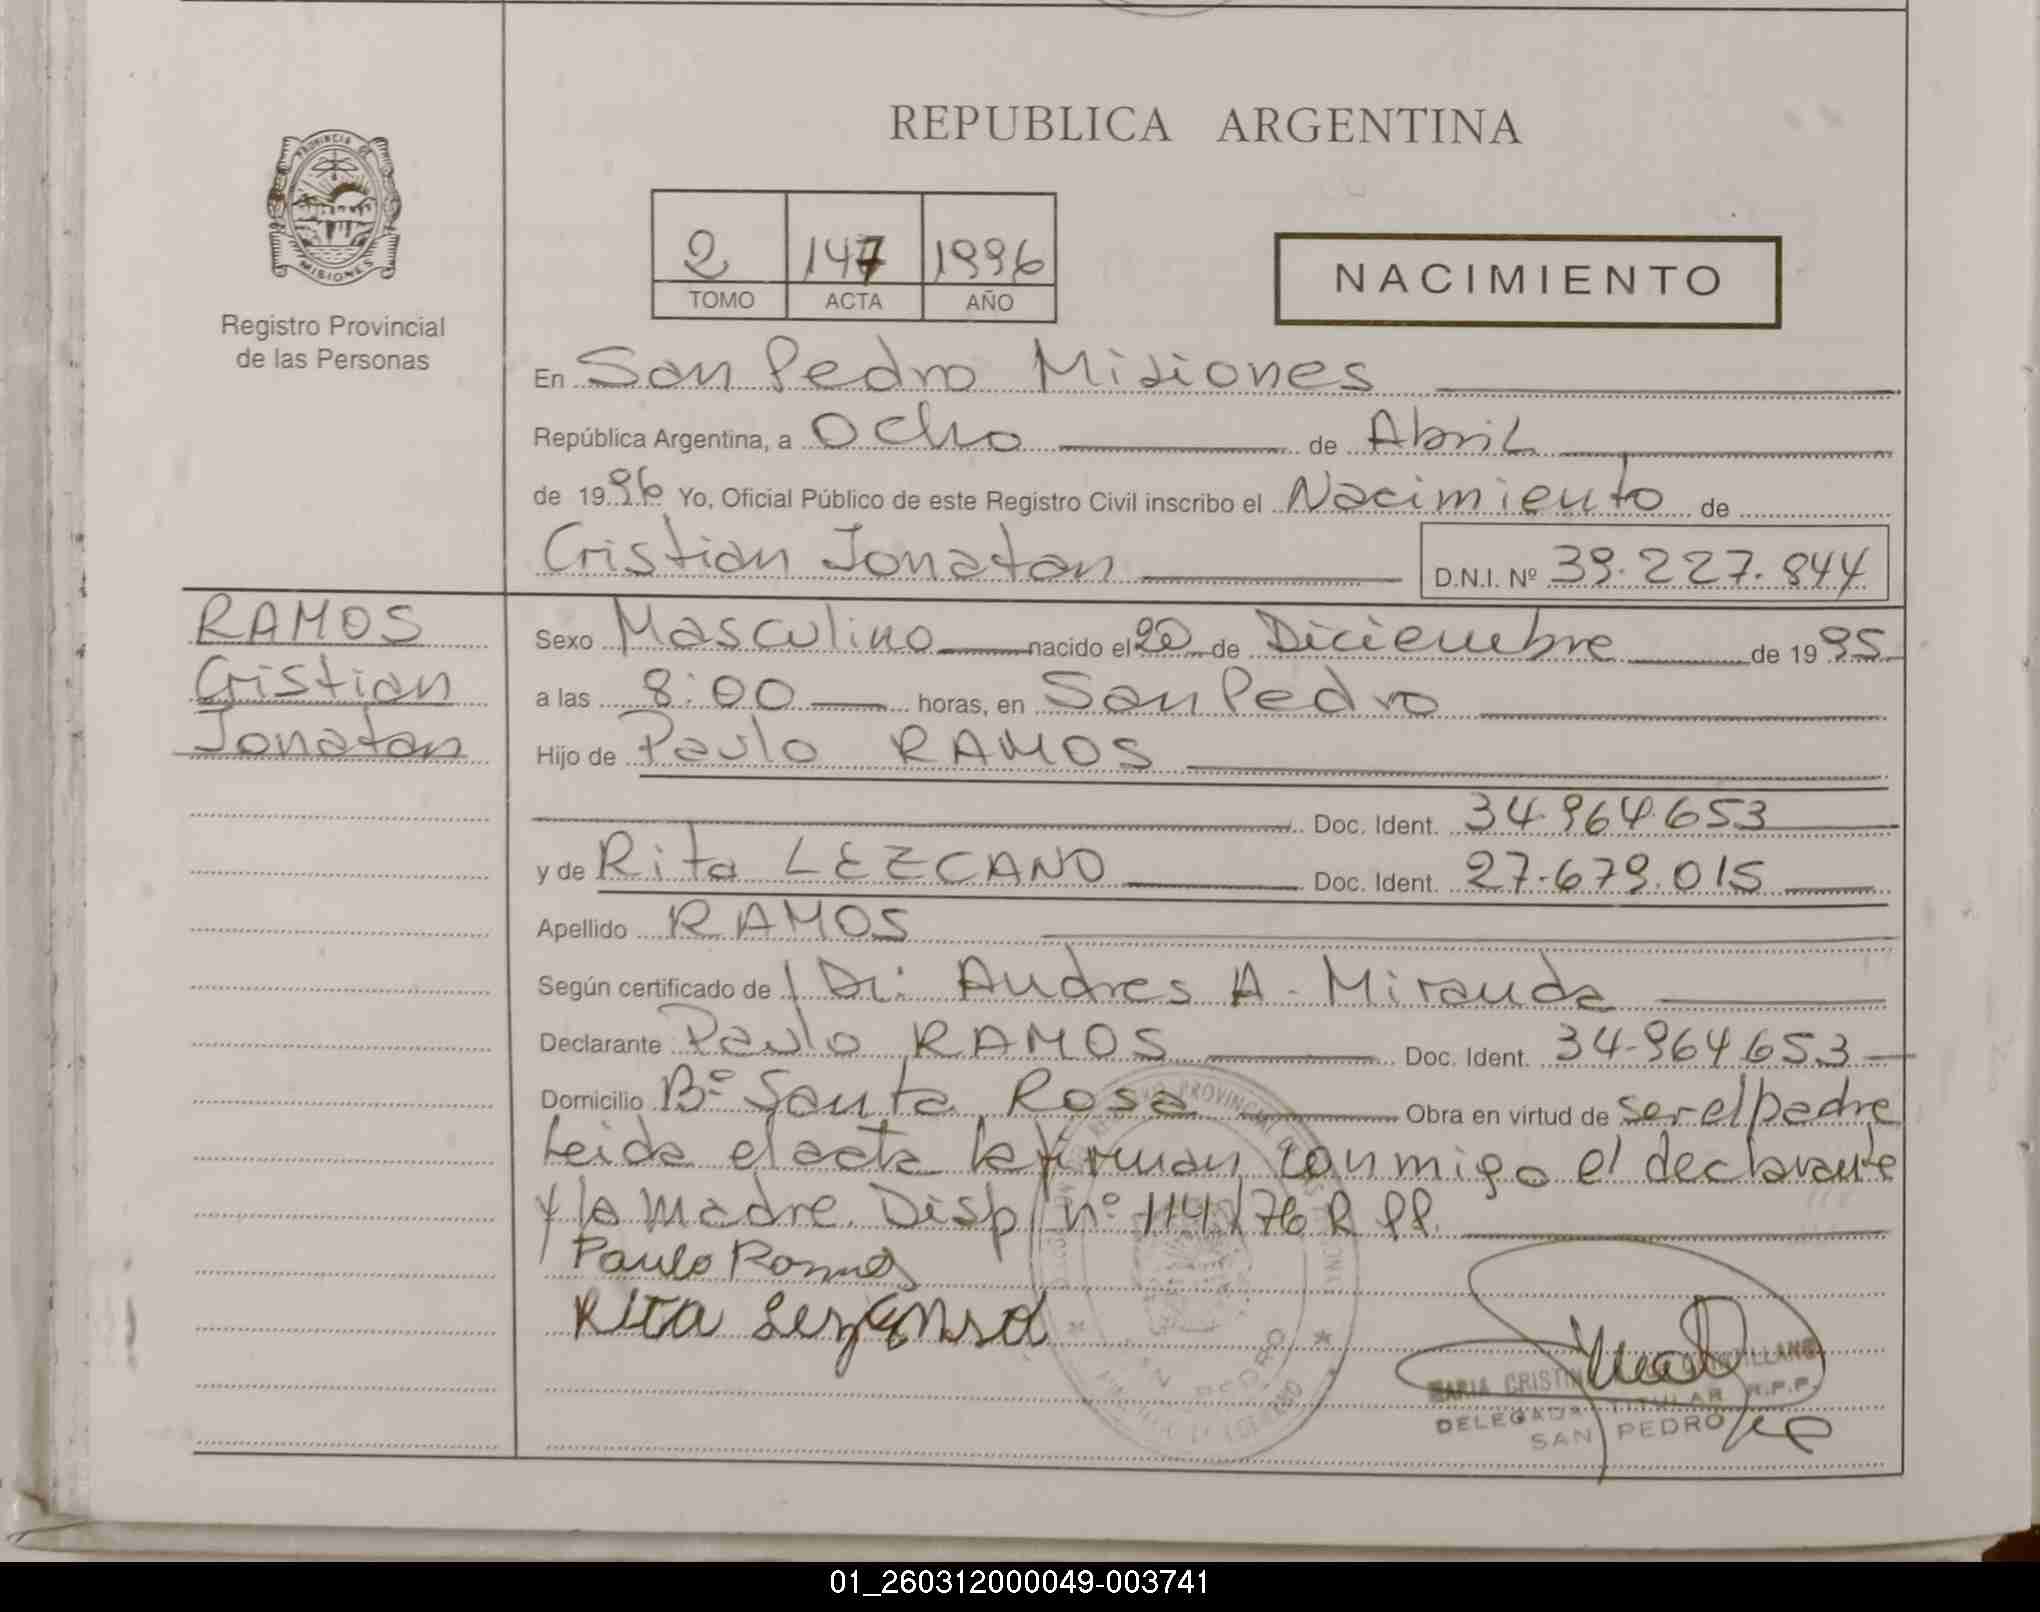 REPUBLICA ARGENTINA
PROVINCIA DE
MISIONES
Registro Provincial
de las Personas
2 147 1996
TOMO ACTA AÑO
NACIMIENTO
En San Pedro Misiones
República Argentina, a Ocho de Abril
de 1996 Yo, Oficial Público de este Registro Civil inscribo el Nacimiento de
Cristian Jonatan D.N.I. Nº 39.227.844
RAMOS
Cristian
Jonatan
Sexo Masculino nacido el 20 de Diciembre de 1995
a las 8:00 horas, en San Pedro
Hijo de Paulo RAMOS
Doc. Ident. 34.964.653
y de Rita LEZCANO Doc. Ident. 27.679.015
Apellido RAMOS
Según certificado de Dr: Andres A. Miranda
Declarante Paulo RAMOS Doc. Ident. 34.964.653
Domicilio Bº Santa Rosa Obra en virtud de ser el padre
Leida el acta la firman conmigo el declarante
y la madre. Disp. nº 114/76 R.P.P.
Paulo Ramos
Rita
MARIA CRISTIN
DELEGADA TITULAR R.P.P.
SAN PEDRO
01_260312000049-003741